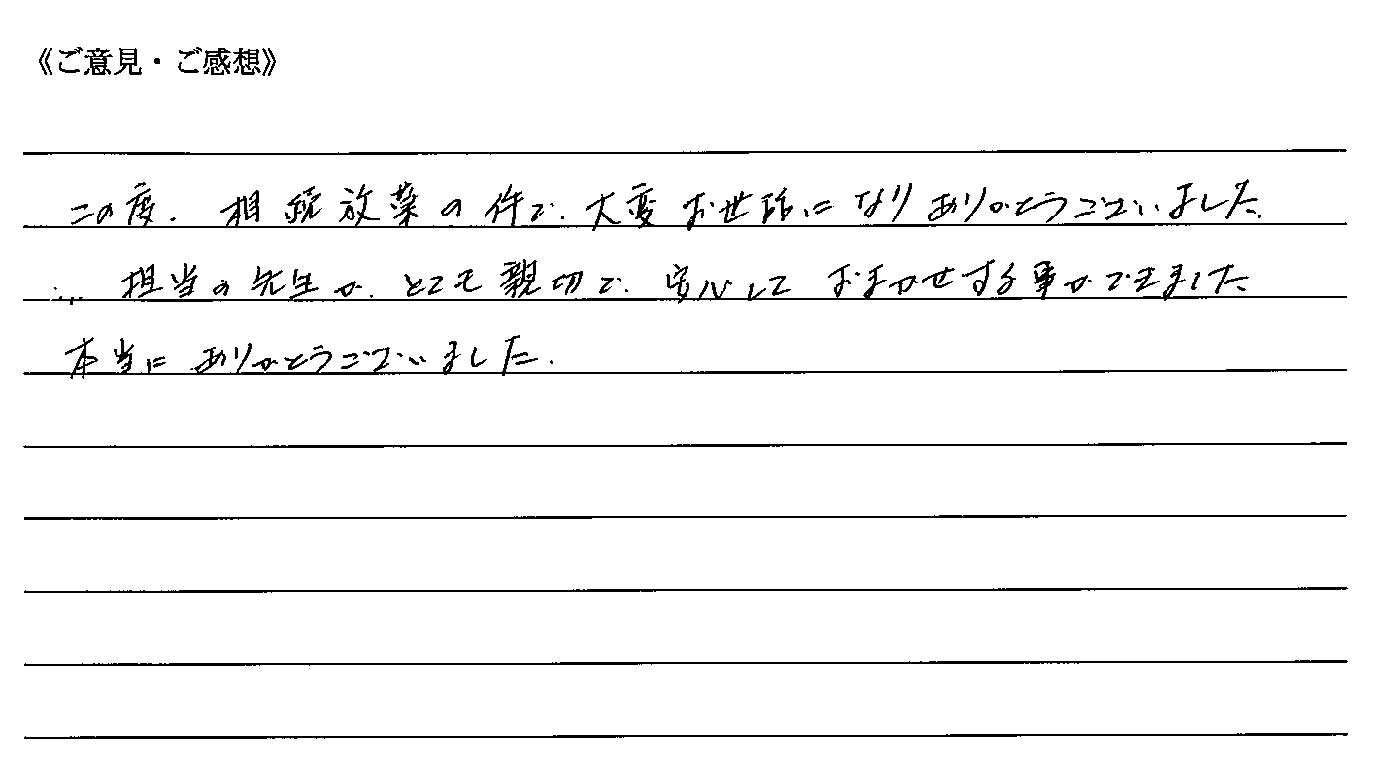 《ご意見・ご感想》
この度、相続放棄の件で、大変お世話になりありがとうございました。
担当の先生が、とても親切で、安心しておまかせする事ができました
本当にありがとうございました。